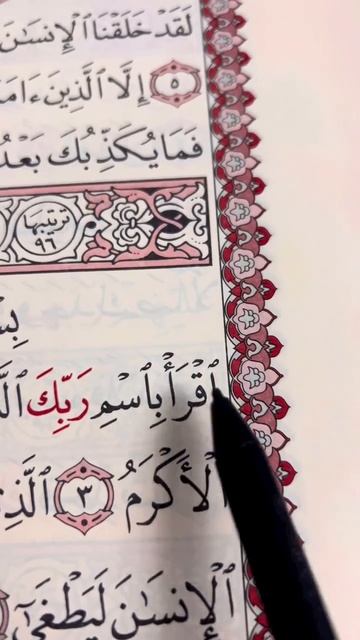 لَقَدْ خَلَقْنَا ٱلْإِنسَٰنَ
٥ إِلَّا ٱلَّذِينَ ءَامَ
فَمَا يُكَذِّبُكَ بَعْدُ
ترتيبها ٩٦
بِسْ
ٱقْرَأْ بِٱسْمِ رَبِّكَ ٱلَّ
ٱلْأَكْرَمُ ٣ ٱلَّذِ
ٱلْإِنسَٰنَ لَيَطْغَىٰٓ